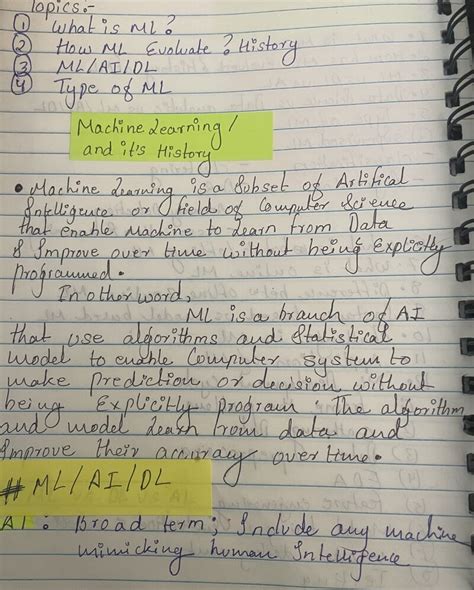 Topics:-
① What is ML?
② How ML Evoluate? History
③ ML/AI/DL
④ Type of ML
Machine Learning /
and it's History
• Machine Learning is a Subset of Artifical
Intelligence or field of Computer Science
that enable Machine to learn from Data
& Improve over time without being Explicitly
programmed.
In other word,
ML is a branch of AI
that use algorithms and Statistical
model to enable Computer system to
make Prediction or decision without
being Explicitly program. The algorithm
and model learn from data and
Improve their accuracy over time.
# ML/AI/DL
AI : Broad term; Include any machine
mimicking human Intelligence